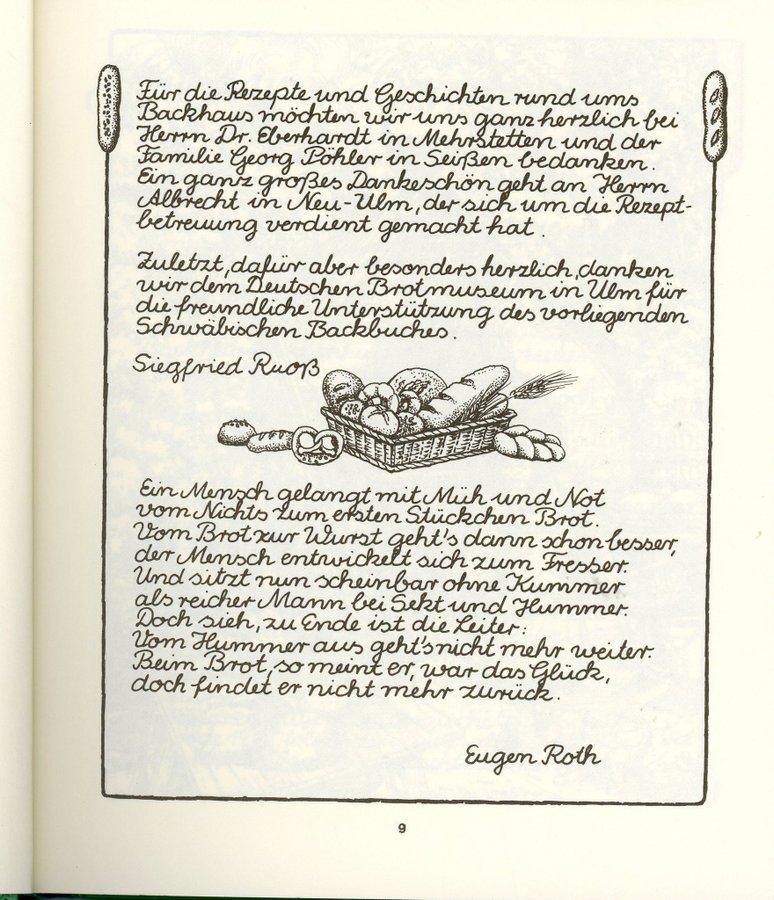 Für die Rezepte und Geschichten rund ums
Backhaus möchten wir uns ganz herzlich bei
Herrn Dr. Eberhardt in Mehrstetten und der
Familie Georg Pöhler in Seißen bedanken.
Ein ganz großes Dankeschön geht an Herrn
Albrecht in Neu-Ulm, der sich um die Rezept-
betreuung verdient gemacht hat.
Zuletzt, dafür aber besonders herzlich, danken
wir dem Deutschen Brotmuseum in Ulm für
die freundliche Unterstützung des vorliegenden
Schwäbischen Backbuches.
Siegfried Ruoß
Ein Mensch gelangt mit Müh und Not
vom Nichts zum ersten Stückchen Brot.
Vom Brot zur Wurst geht's dann schon besser,
der Mensch entwickelt sich zum Fresser.
Und sitzt nun scheinbar ohne Kummer
als reicher Mann bei Sekt und Hummer.
Doch sieh, zu Ende ist die Leiter:
Vom Hummer aus geht's nicht mehr weiter.
Beim Brot, so meint er, war das Glück,
doch findet er nicht mehr zurück.
Eugen Roth
9